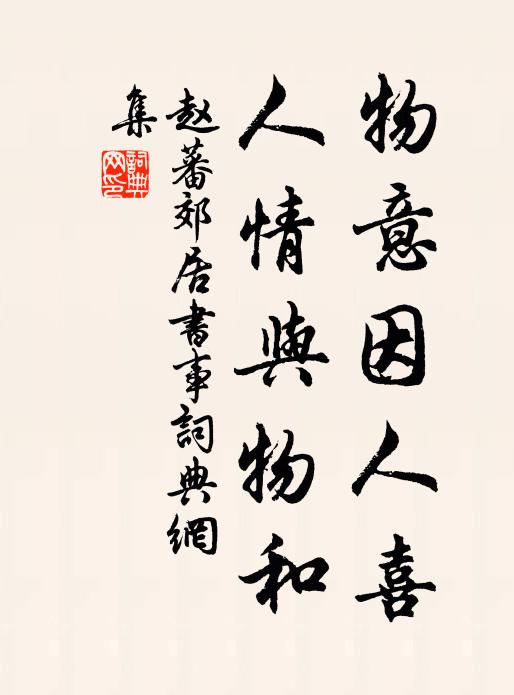 物意因人喜
人情與物和
赵蕃郊居書事詞典網
集
詞典
网印